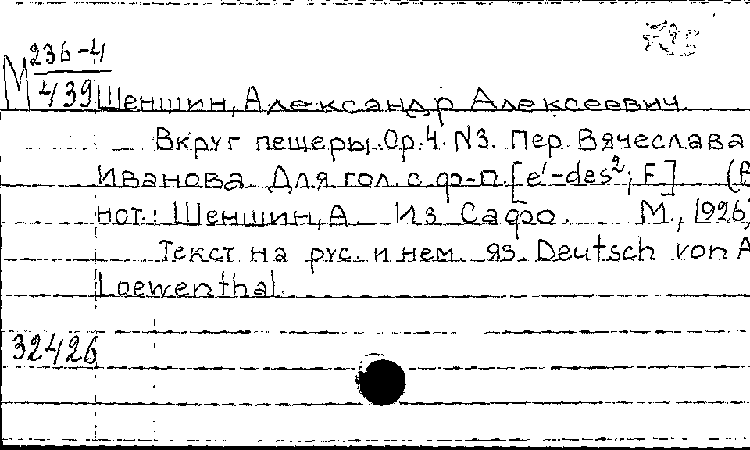 М 236-4
439
Шеншин, Александр Алексеевич.
Вкруг пещеры. Ор.4. N3. Пер. Вячеслава
Иванова. Для гол. с ф-п. [e'-des², F] (В
нот.: Шеншин, А. Из Сафо. М., 1926,
Текст на рус. и нем. яз. Deutsch von A
Loewenthal.
32426